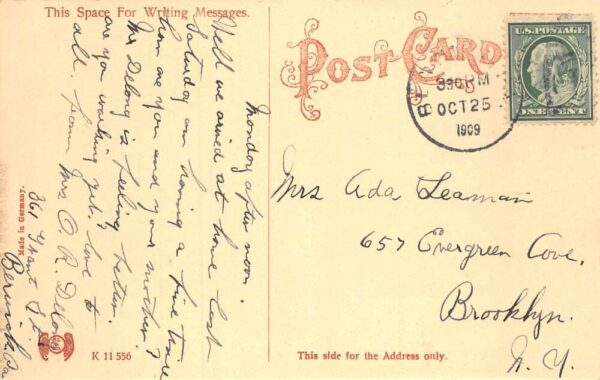 This Space For Writing Messages.
POST CARD
Monday after noon.
Well we arived at home last
Saturday am having a fine time
how are you and your mother?
Mr Delong is feeling better.
are you working yet. love to
all. from Mrs O. R. Delong
361 Grant St
Berwick, Pa
330 PM
OCT 25
1909
U.S. POSTAGE
ONE CENT
Mrs Ada Leaman
657 Evergreen Cove,
Brooklyn.
N. Y.
Made in Germany.
K 11 556
This side for the Address only.